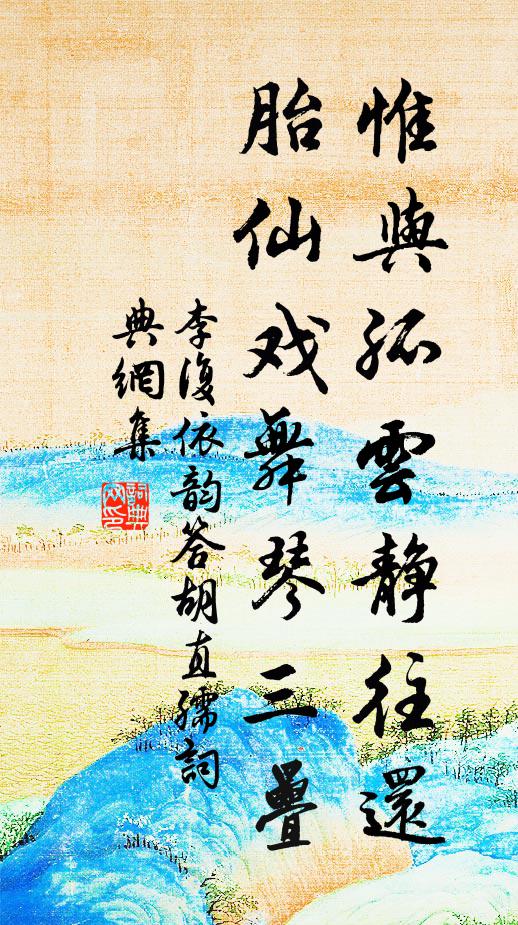 惟與孤雲静往還
胎仙戏舞琴三疊
李復依韵答胡直孺詞
典網集
詞典网印